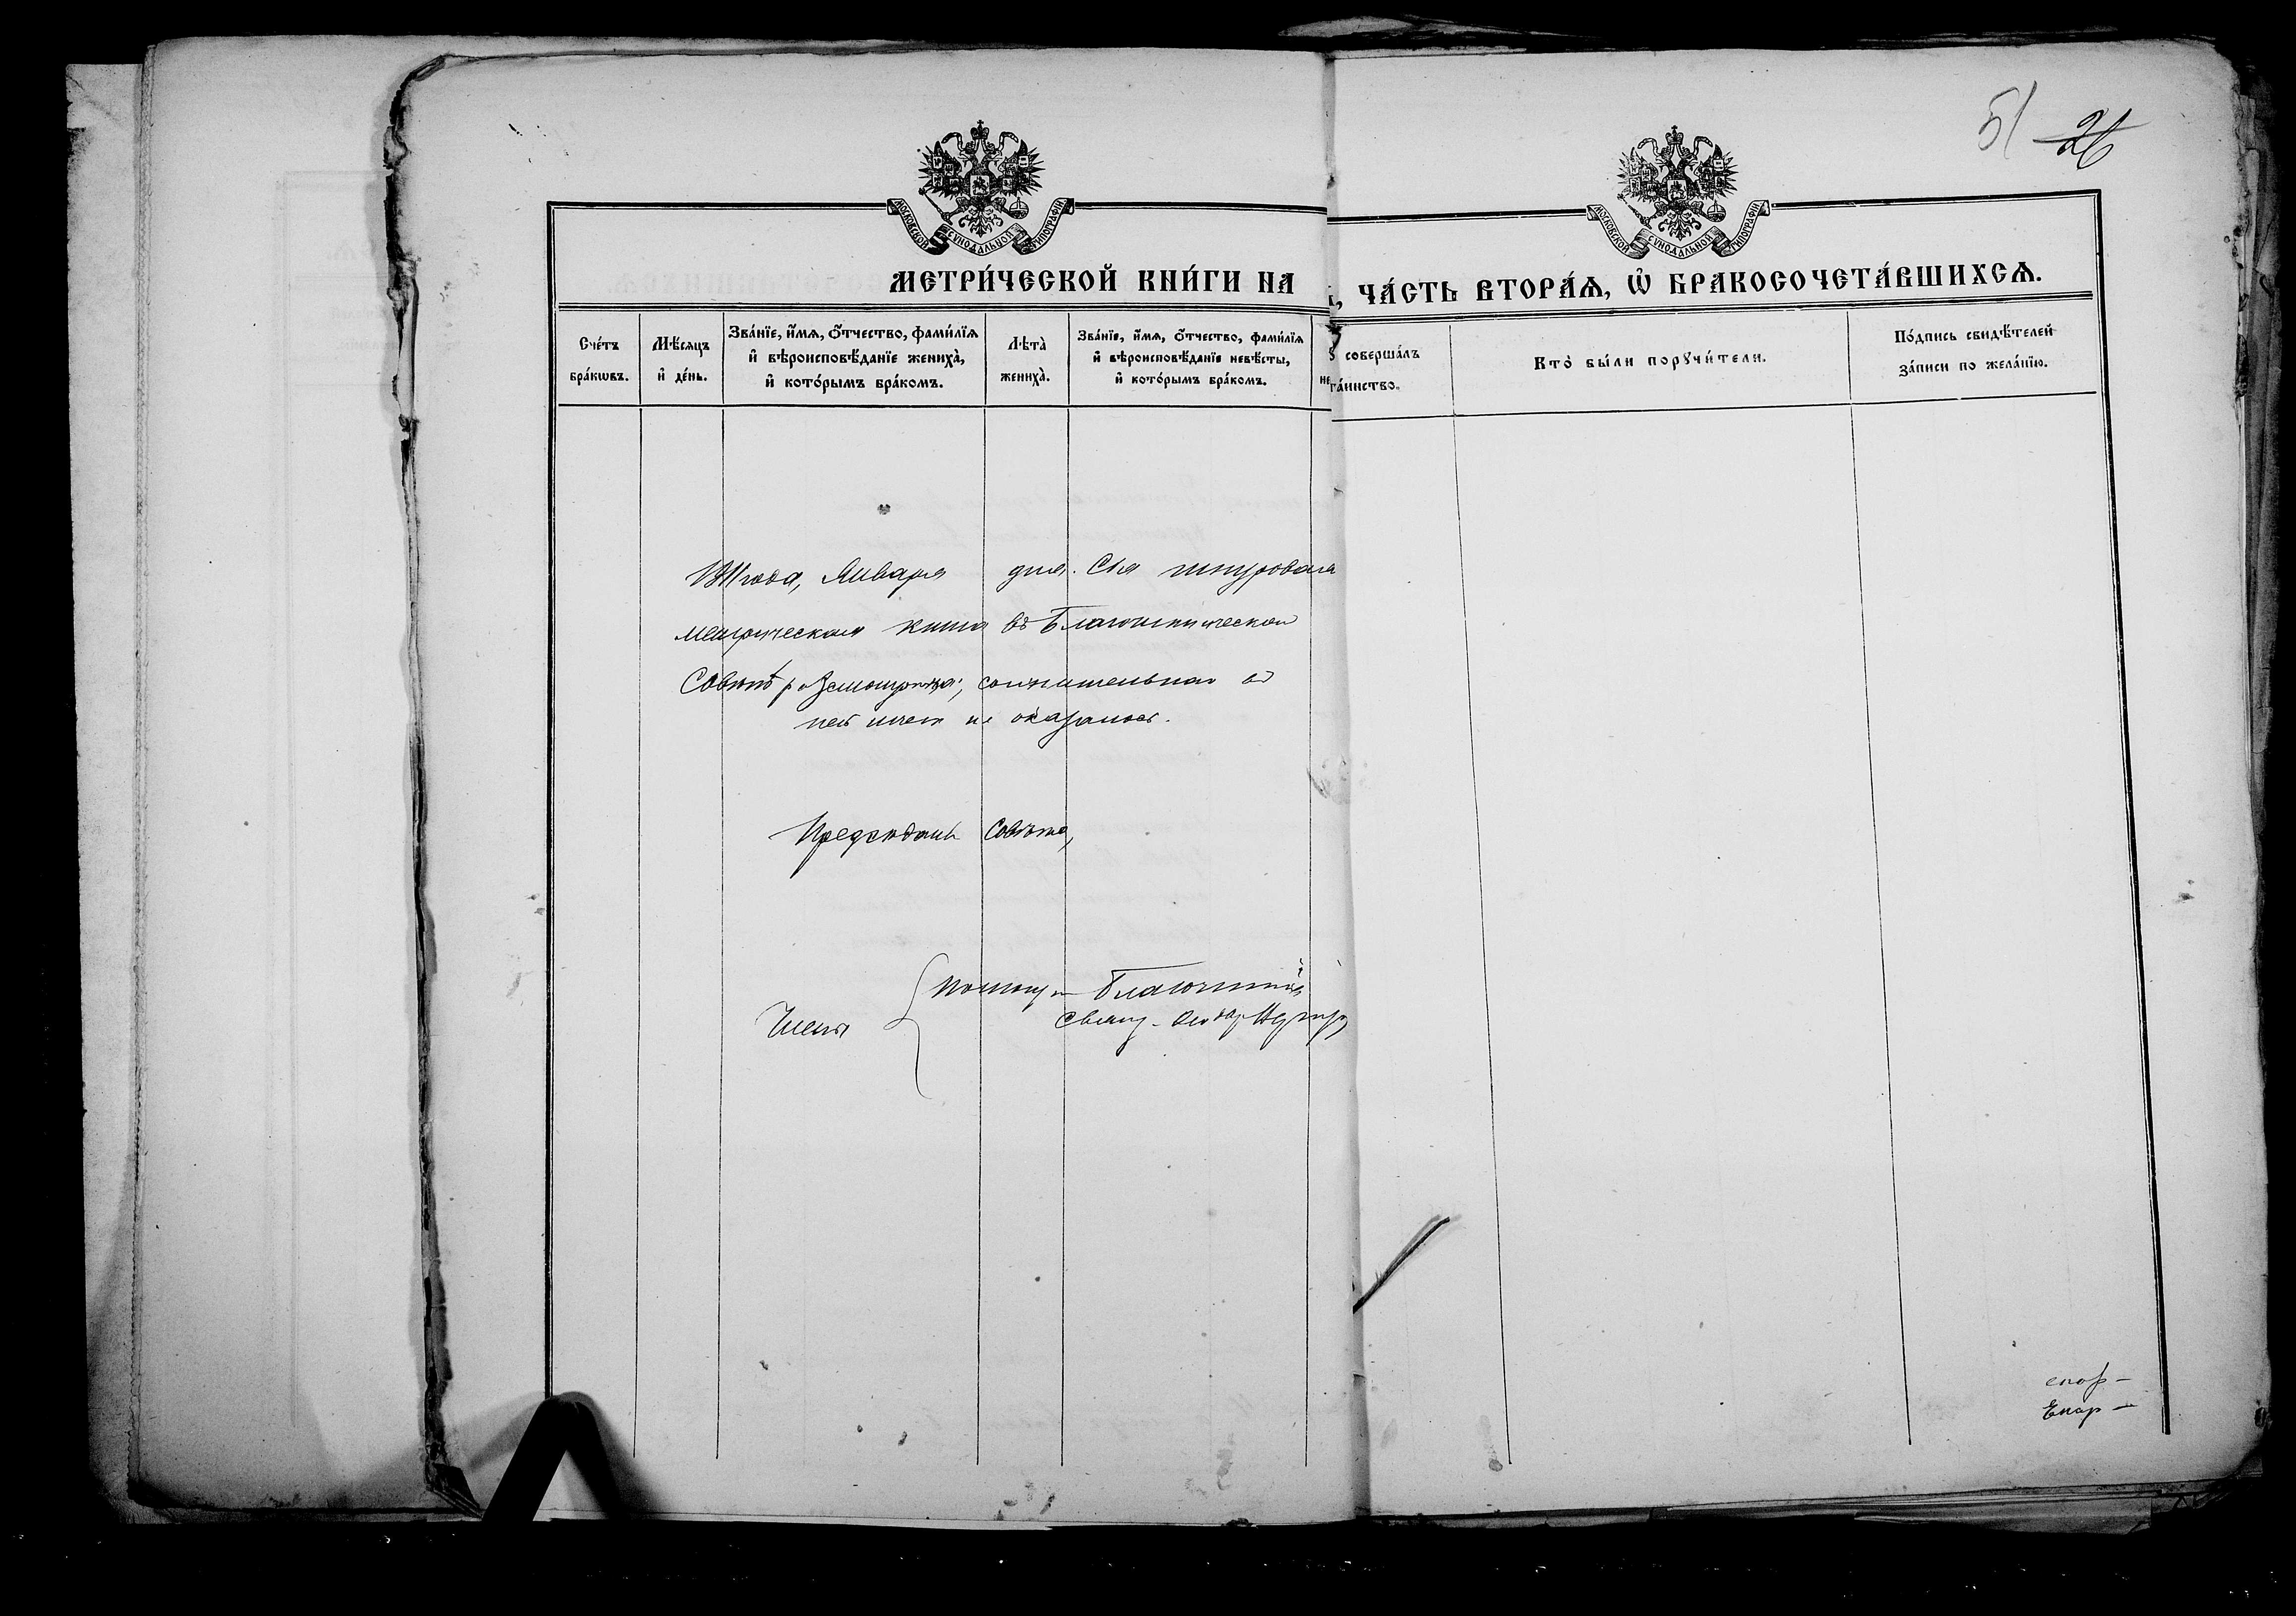 51 26
МОСКОВСКОЙ СѴНОДАЛЬНОЙ ТИПОГРАФІИ
МОСКОВСКОЙ СѴНОДАЛЬНОЙ ТИПОГРАФІИ
МЕТРИ́ЧЕСКОЙ КНИ́ГИ НА
, ЧА́СТЬ ВТОРА́Ѧ, Ѽ БРАКОСОЧЕТА́ВШИХСѦ.
Сче́тъ бра́кѡвъ.
Мѣ́сяцъ и҆ де́нь.
Зва́нїе, и҆́мя, ѻ҆́тчество, фами́лїя
и҆ вѣроисповѣ́данїе женихà,
и҆ кото́рымъ бра́комъ.
Лѣ́та женихà.
Зва́нїе, и҆́мя, ѻ҆́тчество, фами́лїя
и҆ вѣроисповѣ́данїе невѣ́сты,
и҆ кото́рымъ бра́комъ.
не
совершáлъ
та́инство.
Кто̀ бы́ли порꙋчи́тели.
По́дпись свидѣ́телей
за́писи по жела́нїю.
года, Января дня. Сія шнуровая
метрическая книга въ Благочинническомъ
Совѣтѣ сомнительнаго въ
ней ничего не оказалось.
Предсѣдатель Совѣта,
Члены
Помощн. Благочиннаго
Свящ.